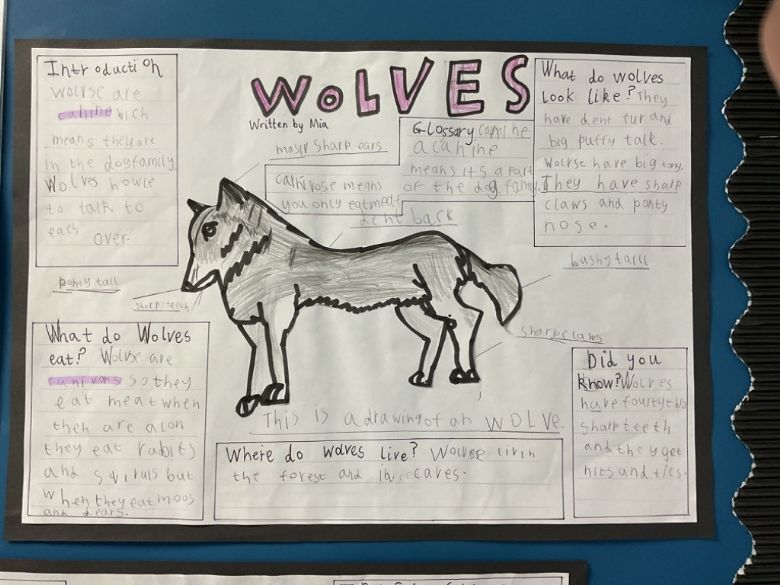 WOLVES
Written by Mia
Introduction
Wolvse are
canine wich
means they are
in the dog family.
Wolves howle
to talk to
each
over.
masiv sharp ears
Glossary canine
a canine
means its a part
of the dog family
carnivose means
you only eat meat
dent back
What do wolves
Look like? They
have dent fur and
big puffy tail.
Wolvse have big
They have sharp
claws and ponty
nose.
ponty tail
sharp teeth
bushy tail
sharp claws
What do Wolves
eat? Wolvse are
so they
eat meat when
then are alon
they eat rabits
and squiruls but
when they eat moos
and dears.
This is a drawing of an WOLVE.
Where do wolves live? Wolvse livin
the forest and in caves.
Did you
know? Wolves
have fourty two
sharp teeth
and they get
nits and tics.